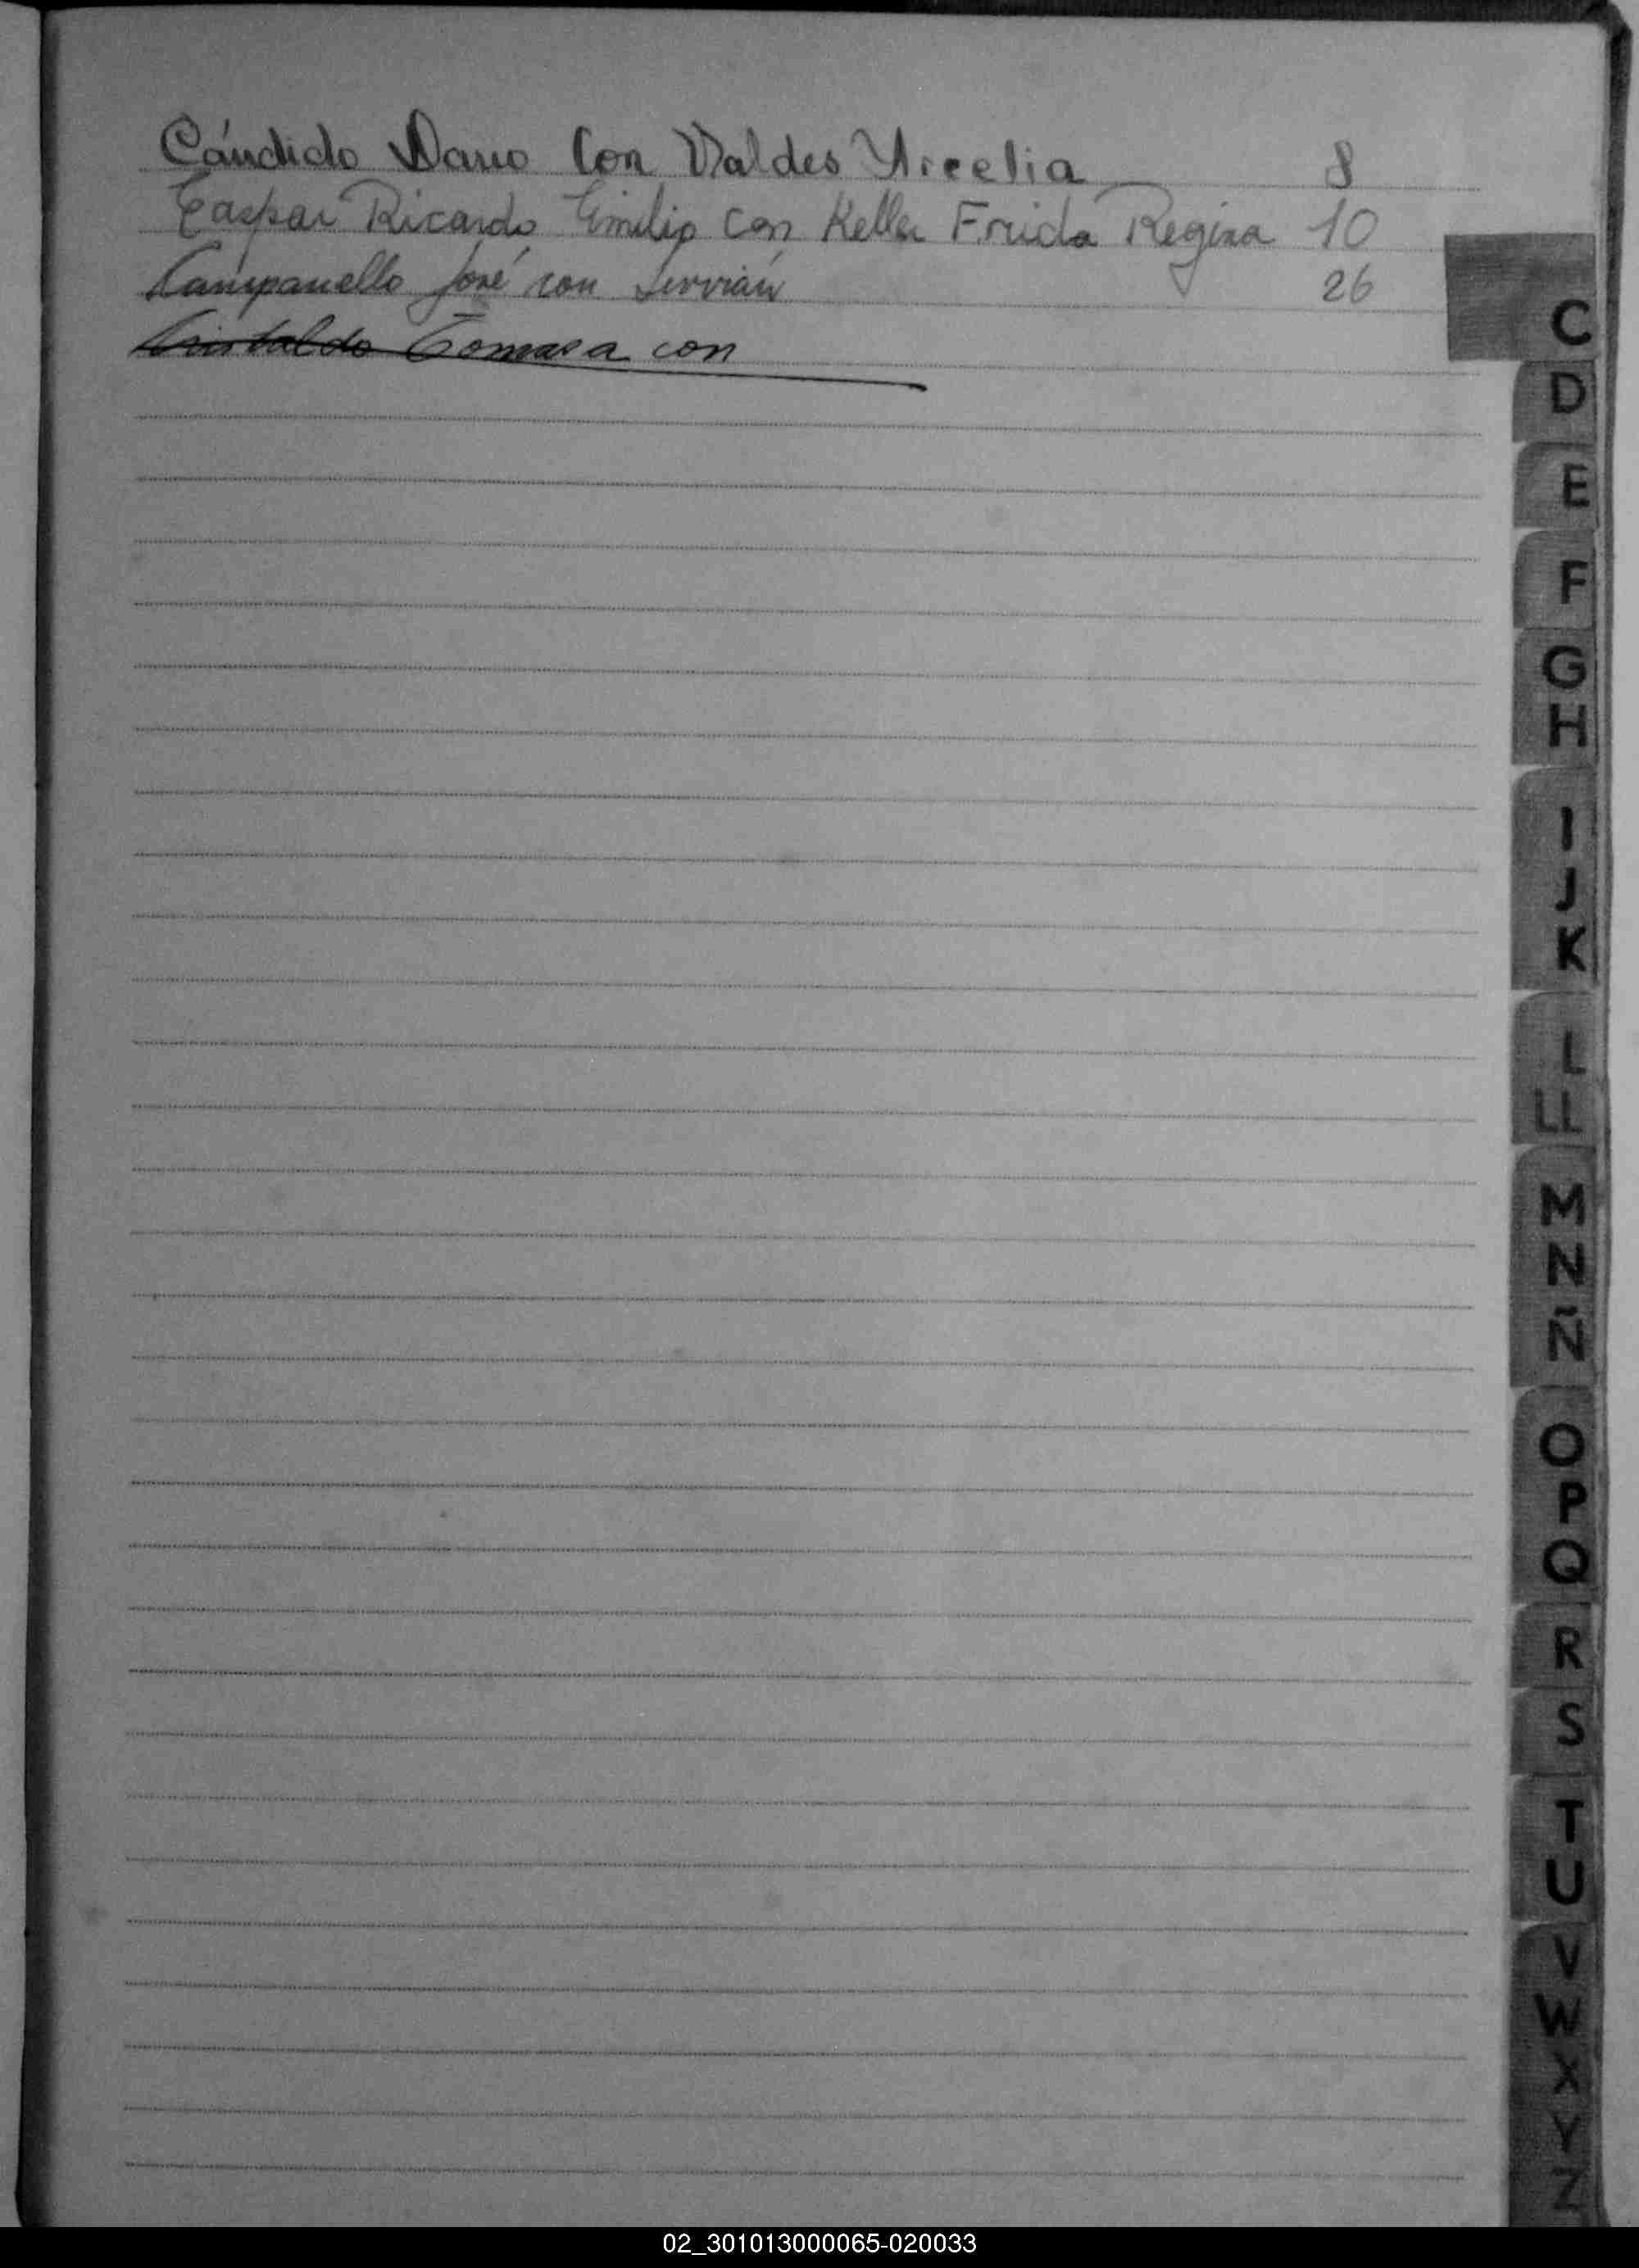 Cándido Dario Con Valdes Arcelia 8
Caspar Ricardo Emilio con Keller Frida Regina 10
Campanello José con Servián 26
Cristaldo Tomasa con
C
D
E
F
G
H
I
J
K
L
LL
M
N
Ñ
O
P
Q
R
S
T
U
V
W
X
Y
Z
02_301013000065-020033